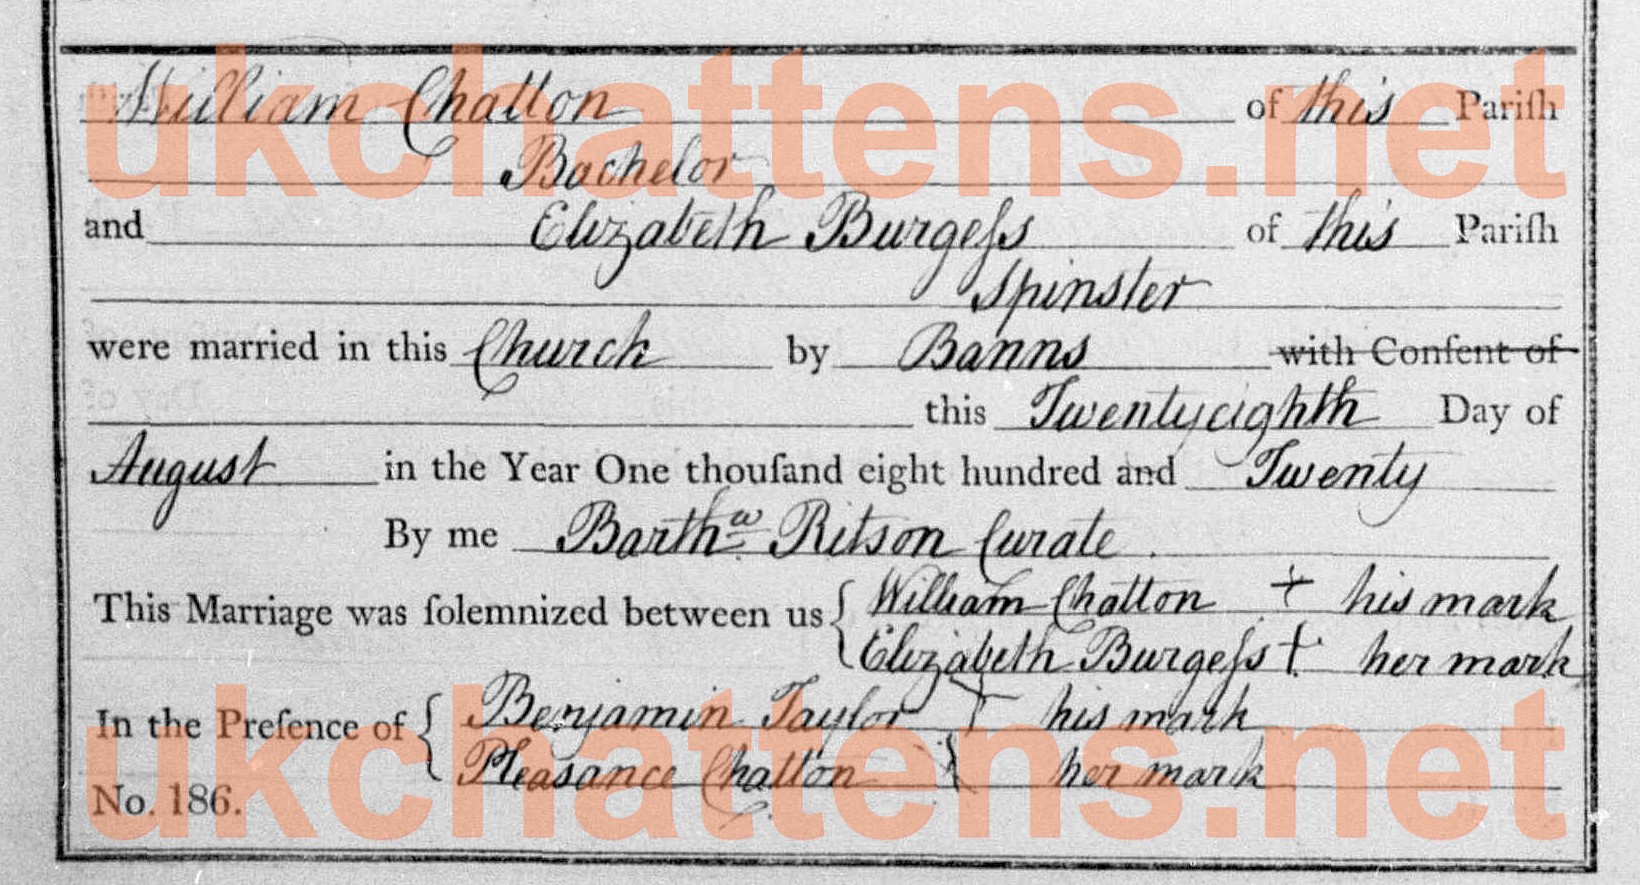 ukchattens.net
William Chatton of this Pariſh
Bachelor
and Elizabeth Burgeſs of this Pariſh
Spinster
were married in this Church by Banns with Conſent of
this Twentyeighth Day of
August in the Year One thouſand eight hundred and Twenty
By me Barthw Ritson Curate.
This Marriage was ſolemnized between us { William Chatton + his mark
Elizabeth Burgeſs + her mark
In the Preſence of { Benjamin Taylor + his mark
Pleasance Chatton + her mark
No. 186.
ukchattens.net